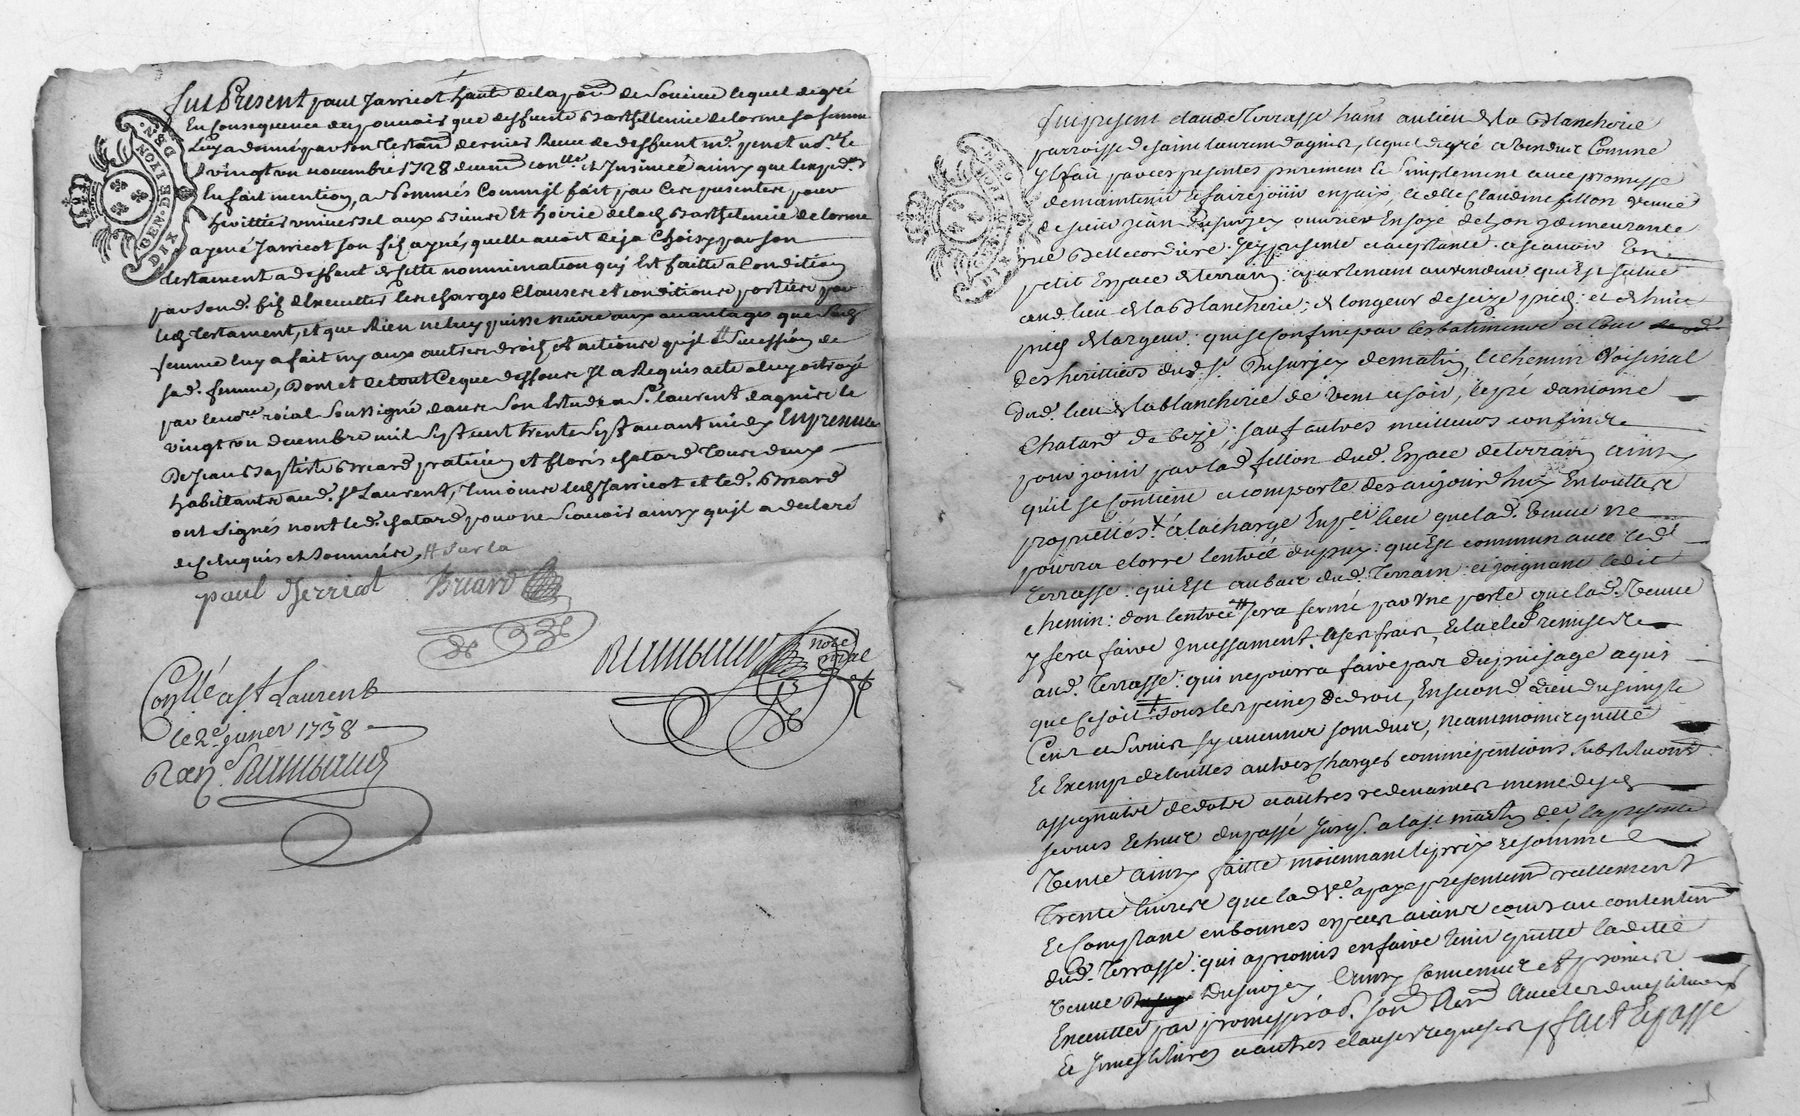 fut Present paul Jarricot habt. de la par. de Soucieu lequel de gré
En consequence du pouvoir que deffunte Barthellemie delorme sa femme
Luy a donné par son Testamt. dernier Receu de deffunt me. not. Rl. le
vingt un novembre 1728 deuemt. conllé. et Jnsinué ainsy que
En fait mention, a Nommés Comm'jl fait par Ces presentes pour
heritier universel aux Biens Et hoirie de lad. Barthelemie delorme
aymé Jarricot son fils aynés qu'elle avoit deja Choisy par son
testament a deffaut de cette nommination qui Est faitte a Condition
par sond. fils d'Executter les charges Clauses et conditions portées par
led. Testament, et que Rien ne luy puisse Nuire aux avantages que sad.
femme luy a fait ny aux autres droits et actions qu'jl # Sucession de
sad. femme, Dont et de tout Ce que dessus Jl a Requis acte a luy octroyé
par le nore. roial Soussigné dans son Estude a St. laurent dagnies le
vingt un decembre mil sept cent trente sept avant midy En presence
De Jean Baptiste Briard praticien et floris chatard Tous deux
habittants aud. St Laurent, Temoins led. Jarricot et led. Briard
ont signés non led. chatard pour ne Scavoir ainsy qu'jl a declaré
de ce Enquis et Sommés, # sur la
paul Jerricot Briard
Raimbaud nore roial
Conllé a St Laurent
le 2e. janer 1738
Rambaud
DIX DEN GEN. LYON
fut present claude Terrasse habt. au lieu de la Blancherie
parroisse de saint laurent dagnies, lequel de gré a vendu Comme
Jl fait par ces presentes purement et simplement avec promesse
de maintenir et faire jouir en paix, a delle Claudine fillon veuve
de sieur jean Dusurjey ouvrier En soye de lyon y demeurante
rue Bellecordiere jcy presente et acceptante a scavoir Un
petit Espace de terrain apartenant au vendeur qui Est situé
aud. lieu de la Blancherie; de longeur de seize pieds: et de huit
pieds de largeur: qui se confine par les batiments et Cour
des heritiers dud. Sr Dusurjey de matin, le chemin Voisinal
dud. lieu de la blancherie de vent et soir, le pré d'antoine
Chatard de bize, sauf autres meilleurs confins
pour jouir par lad. fillon dud. Espace de terrain ainsy
qu'il se Contient et comporte des aujourdhuy En toutte
propriettés a la charge En per. lieu que lad. veuve ne
pourra clorre l'entrée du puy: qui Est commun avec led.
Terrasse: qui Est au bout dud. Terrain: et joignant ledit
chemin: don l'entrée # sera fermé par Une porte que lad. Veuve
y fera faire Jncessament: a ses frais, et la clef remise
aud. Terrasse: qui ne pourra faire part du puisage a qui
que ce soit sous les peines De droit, En second lieu du simple
Cens et servis sy aucuns sont dus, neammoins quitte
Et Exempt de touttes autres charges comme pentions, substitutions
assignation de dotte et autres redevances meme desd.
servis Echus du passé Jusqu. a la st martin der la presente
Vente ainsy faitte moiennant le prix Et somme de
Trente livres que lad. ve. a payé presentemt. rellement
Et Comptant en bonnes especes aiant cours au contentemt.
dud. Terrasse: qui a promis en faire tenir quitte ladite
veuve Dusurjey Ainsy Convenus et promis
Executter par
Et autres clauses requises, fait Et passé